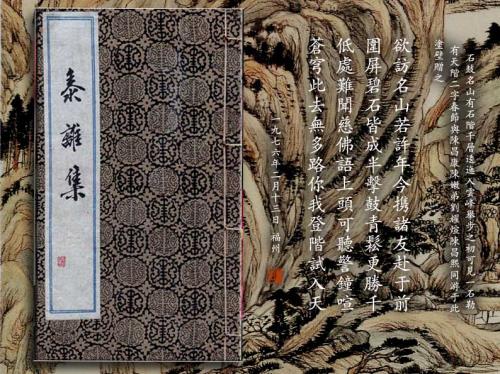 黍離集
石鼓名山有石階千層遠通入雲峰舉步之初可見一石勒
有天階二字春節與陳昌康陳嫩弟劉耀煊陳昌熙同游于此
塗壁贈之
欲訪名山若許年今攜諸友赴于前
圍屏碧石皆成半擊鼓青鬆更勝千
低處難聞慈佛語上頭可聽警鐘喧
蒼穹此去無多路你我登階試入天
一九七六年二月十三日 福州